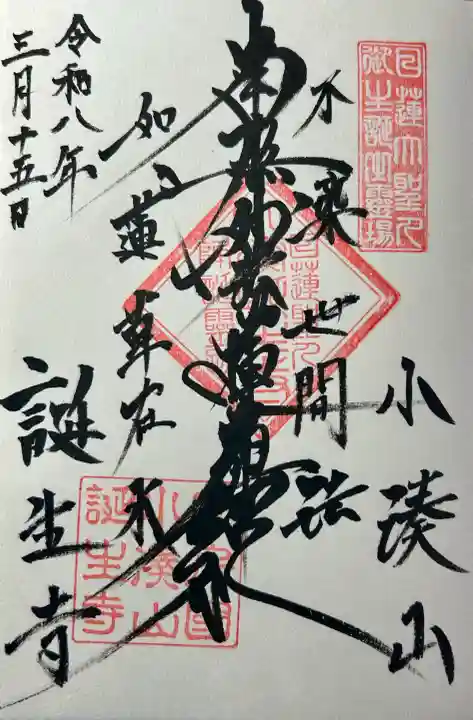 日蓮大聖人
御生誕之靈場
小湊山
不染世間法
南無妙法蓮華経
如蓮華在水
令和八年
三月十五日
誕生寺
小湊山
誕生寺